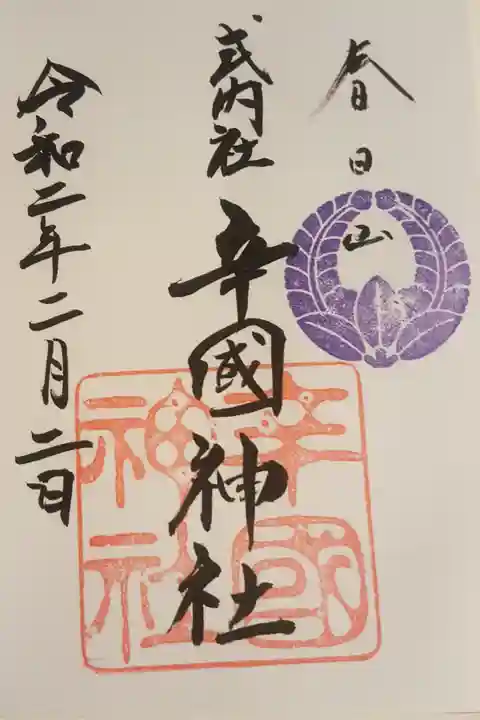 春日山
式内社 辛國神社
令和二年二月二日
辛國
神社